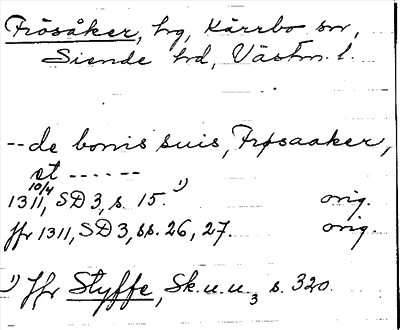 Frösåker, hg, Kärrbo sn,
Siende hd, Västm. l.
-- de bonis suis, Frøsaaker,
et ------
10/4
1311, SD 3, s. 15. 1) orig.
jfr 1311, SD 3, ss. 26, 27. orig.
1) Jfr Styffe, Sk. u. u3 s. 320.